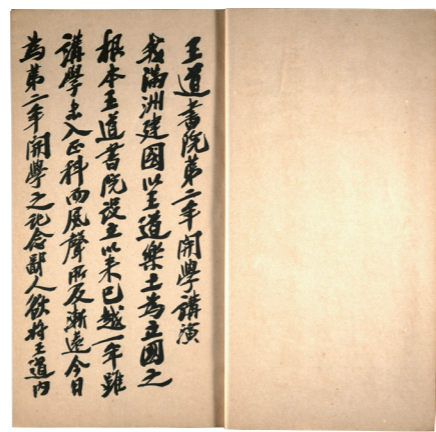 王道書院第二年開學講演
我滿洲建國以王道樂土為立國之
根本王道書院設立以來已越一年雖
講學未入正科而風聲所及漸遠今日
為第二年開學之記念鄙人欲將王道內